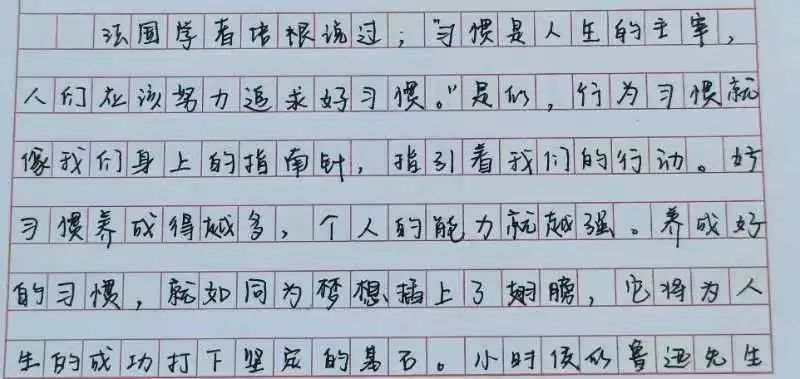 法国学者培根说过；"习惯是人生的主宰，
人们应该努力追求好习惯。"是的，行为习惯就
像我们身上的指南针，指引着我们的行动。好
习惯养成得越多，个人的能力就越强。养成好
的习惯，就如同为梦想插上了翅膀，它将为人
生的成功打下坚定的基石。小时候的鲁迅先生